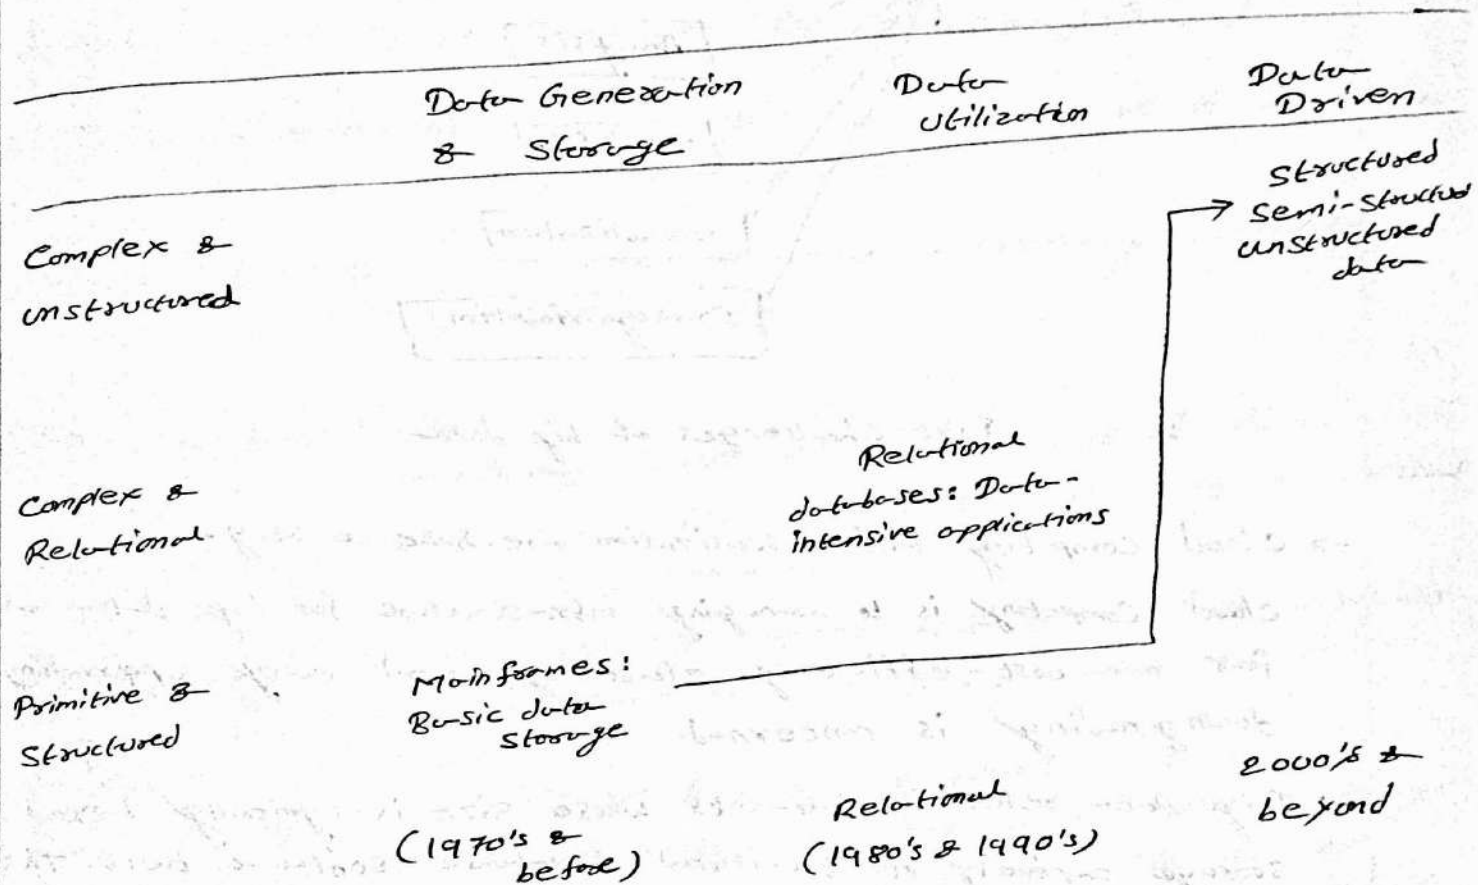 Data Generation
& Storage
Data
Utilization
Data
Driven
Complex &
unstructured
Structured
Semi-Structud
unstructured
data
Complex &
Relational
Relational
databases: Data-
intensive applications
Primitive &
Structured
Mainframes:
Basic data
Storage
(1970's &
before)
Relational
(1980's & 1990's)
2000's &
beyond